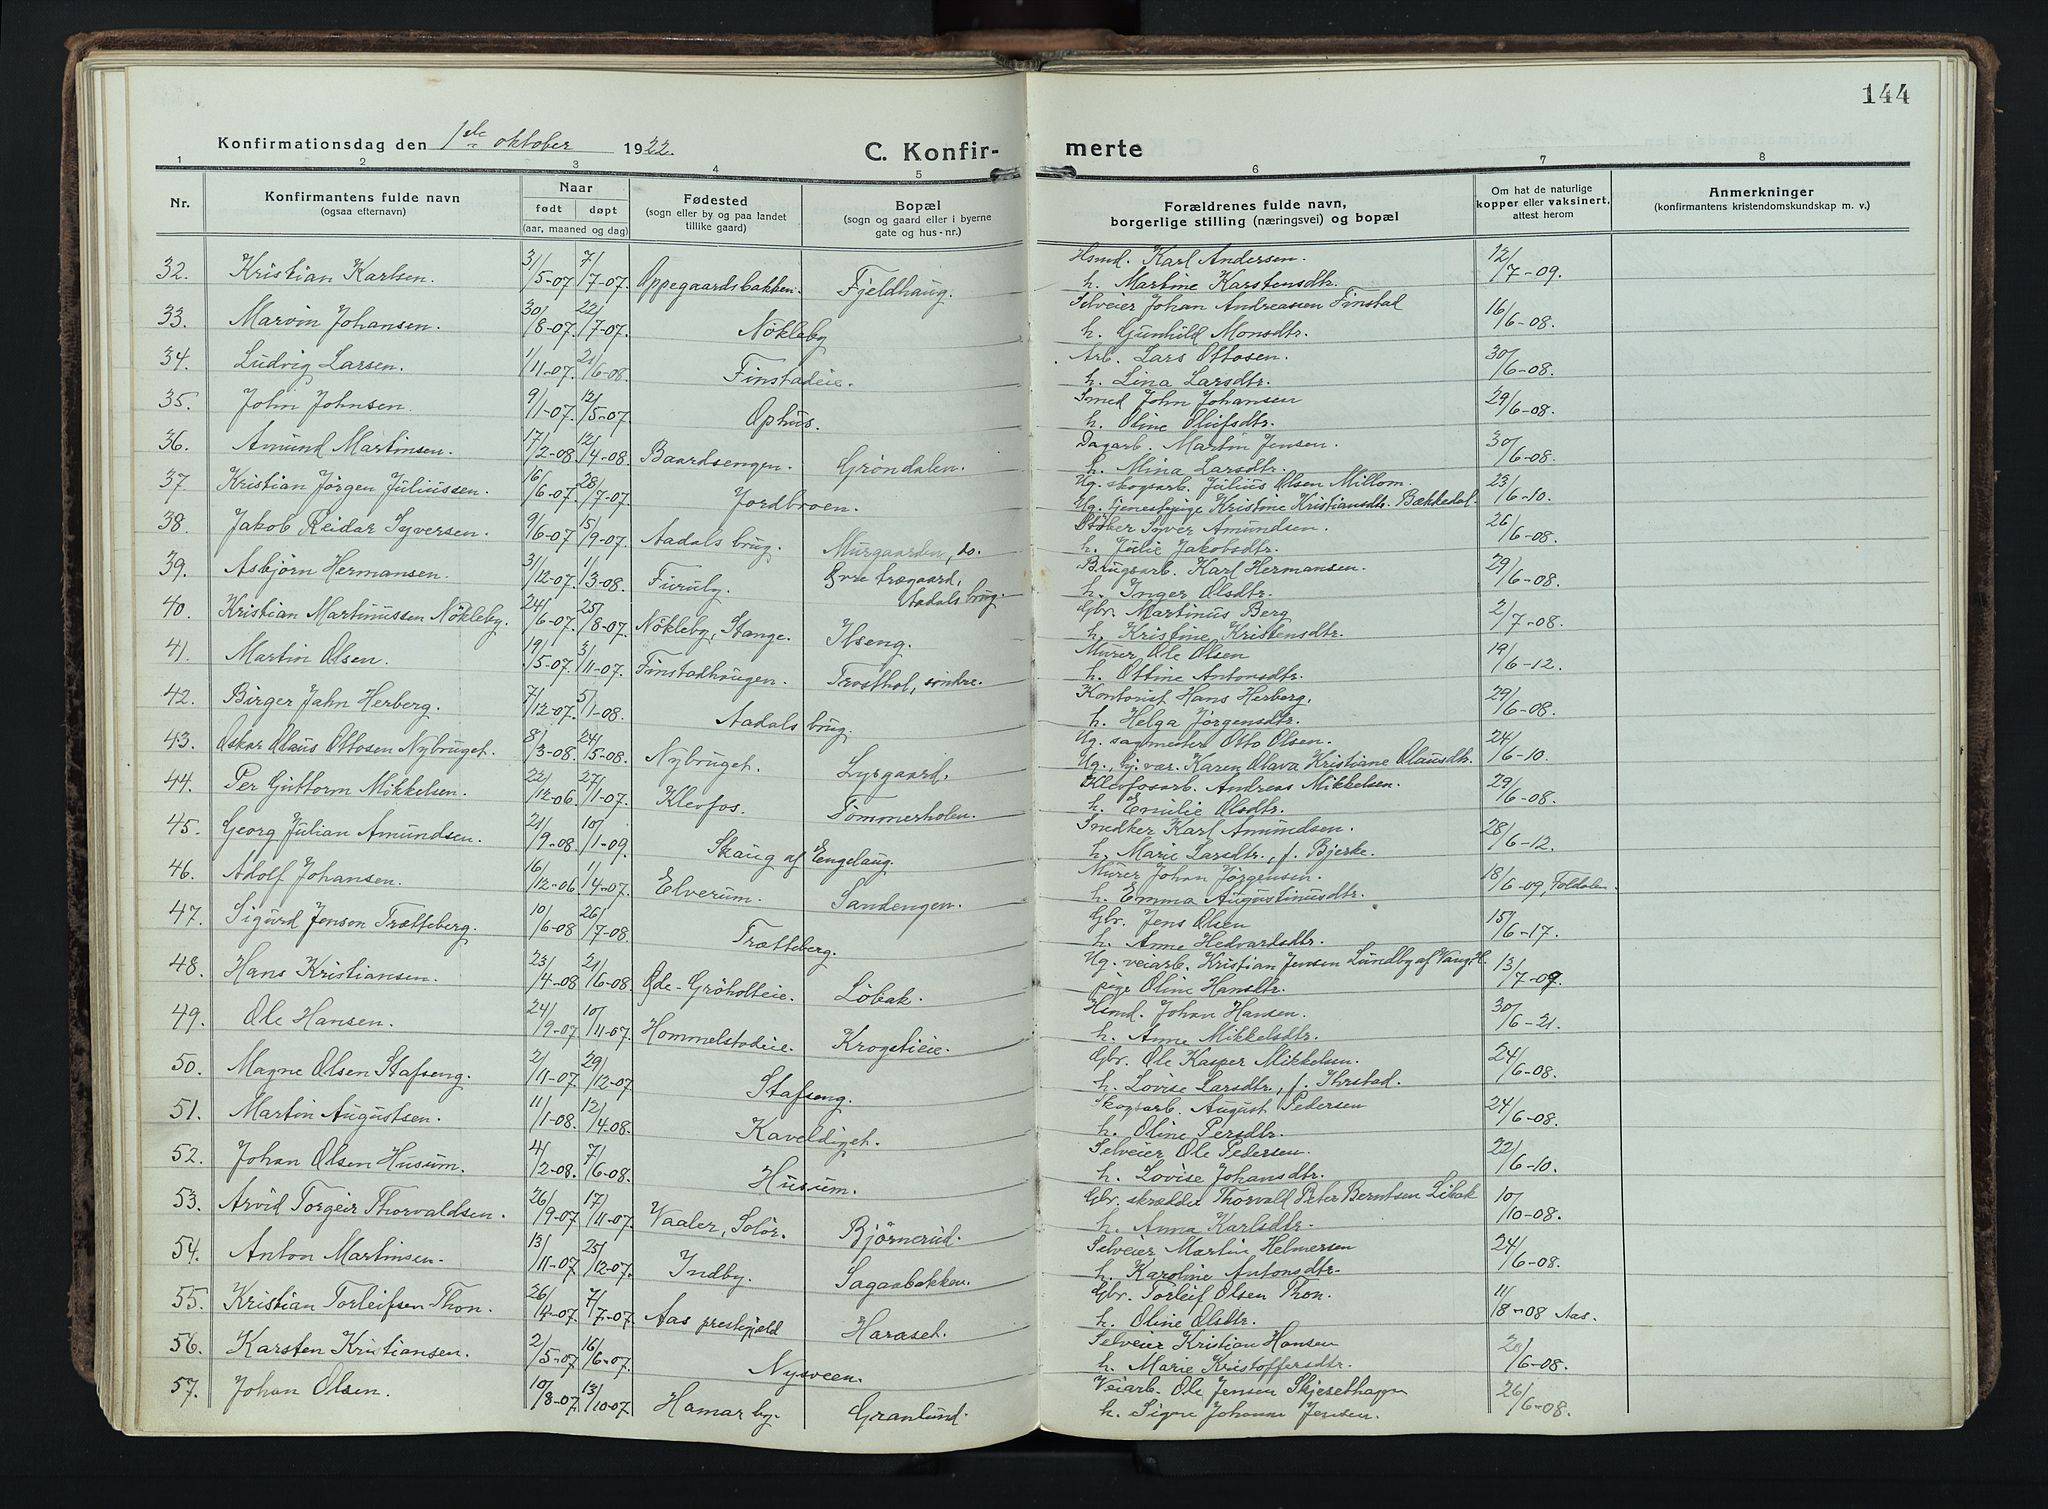 144
Konfirmationsdag den 1ste oktober 1922.
C. Konfir- merte
1 2 3 4 5 6 7 8
Nr. Konfirmantens fulde navn (ogsaa efternavn) Naar født døpt (aar, maaned og dag) Fødested (sogn eller by og paa landet tillike gaard) Bopæl (sogn og gaard eller i byerne gate og hus-nr.) Forældrenes fulde navn, borgerlige stilling (næringsvei) og bopæl Om hat de naturlige kopper eller vaksinert, attest herom Anmerkninger (konfirmantens kristendomskundskap m. v.)
32. Kristian Karlsen. 3/5-07 7/7-07. Oppegaardsbakken. Fjeldhaug. Hsmd. Karl Andersen. 12/7-09.
h. Martine Karstensdtr.
33. Marvin Johansen. 30/8-07. 22/7-07. Nökleby Selveier Johan Andreassen Finstad 16/6-08.
h. Gunhild Monsdtr.
34. Ludvig Larsen. 1/11-07. 21/6-08. Finstadeie. Arb. Lars Ottosen. 30/6-08.
h. Lina Larsdtr.
35. John Johnsen. 9/1-07. 12/5-07. Ophus. Smed John Johansen 29/6-08.
h. Oline Olufsdtr.
36. Amund Martinsen. 17/2-08. 12/4-08. Baardsengen. Gröndalen. Dagarb. Martin Jensen. 30/6-08.
h. Mina Larsdtr.
37. Kristian Jörgen Juliussen. 16/6-07. 28/7-07. Jordbroen. Ug. skogsarb. Julius Olsen Millom. 23/6-10.
Ug. tjenestepige Kristine Kristiansdtr. Bækkedal.
38. Jakob Reidar Syversen. 9/6-07. 15/9-07. Aadals brug. Murgaarden, do. Stöber Syver Amundsen. 26/6-08.
h. Julie Jakobsdtr.
39. Asbjörn Hermansen. 3/12-07. 1/3-08. Furuly. Övre trægaard, Aadals brug. Brugsarb. Karl Hermansen. 29/6-08.
h. Inger Olsdtr.
40. Kristian Martinussen Nökleby. 24/6-07. 25/8-07. Nökleby, Stange. Ilseng. Gbr. Martinus Berg 2/7-08.
h. Kristine Kristensdtr.
41. Martin Olsen. 19/5-07. 3/11-07. Finstadhaugen. Trosthol, söndre. Murer Ole Olsen 19/6-12.
h. Ottine Antonsdtr.
42. Birger Jahn Herberg. 7/12-07. 5/1-08. Aadals brug. Kontorist Hans Herberg. 29/6-08.
h. Helga Jörgensdtr.
43. Oskar Olaus Ottosen Nybruget. 8/3-08. 24/5-08. Nybruget. Lysgaard. Ug. sagmester Otto Olsen. 24/6-10.
Ug., hj. vær. Karen Olava Kristiane Olausdtr.
44. Per Guttorm Mikkelsen. 22/12-06. 27/1-07. Klevfos. Tömmerholen. Klevfosarb. Andreas Mikkelsen. 29/6-08.
h. Emilie Olsdtr.
45. Georg Julian Amundsen. 21/9-08. 10/1-09. Skaug af Engelaug. Snedker Karl Amundsen. 28/6-12.
h. Marie Larsdtr., f. Bjerke.
46. Adolf Johansen. 16/12-06. 1/4-07. Elverum. Sandengen. Murer Johan Jörgensen. 18/6-09, Foldalen.
h. Emma Augustinusdtr.
47. Sigurd Jenson Trætteberg. 10/6-08 26/7-08. Trætteberg. Gbr. Jens Olsen 15/6-17.
h. Anne Hedvardsdtr.
48. Hans Kristiansen. 23/4-08 21/6-08. Öde-Gröholteie. Löbak. Ug. veiarb. Kristian Jensen Lundby af Vang H. 13/7-09.
pige Oline Hansdtr.
49. Ole Hansen. 24/9-07. 10/11-07 Hommelstadeie. Krogstieie. Hsmd. Johan Hansen. 30/6-21.
h. Anne Mikkelsdtr.
50. Magne Olsen Stafseng. 2/11-07. 29/12-07 Stafseng. Gbr. Ole Kasper Mikkelsen. 24/6-08.
h. Lovise Larsdtr., f. Ihrstad.
51. Martin Augustsen. 11/1-08. 12/4-08. Kaveldiget. Skogsarb. August Pedersen 24/6-08.
h. Oline Persdtr.
52. Johan Olsen Husum. 4/2-08. 7/6-08. Husum. Selveier Ole Pedersen. 22/6-10.
h. Lovise Johansdtr.
53. Arvid Torgeir Thorvaldsen. 26/9-07. 17/11-07. Vaaler, Solör. Björnerud. Gbr. skrædder Thorvald Peter Berntsen Libak 10/10-08.
h. Anna Karlsdtr.
54. Anton Martinsen. 13/11-07. 25/12-07. Indby. Sagaabakken. Selveier Martin Helmersen 24/6-08.
h. Karoline Antonsdtr.
55. Kristian Torleifsen Thon. 26/4-07. 7/7-07. Aas prestegjeld Haraset. Gbr. Torleif Olsen Thon. 11/18-08 Aas.
h. Oline Olsdtr.
56. Karsten Kristiansen. 2/5-07. 16/6-07. Nysveen. Selveier Kristian Hansen /6-08.
h. Marie Kristoffersdtr.
57. Johan Olsen. 10/8-07. 13/10-07 Hamar by. Granlund. Veiarb. Ole Jensen Skjesethagen 26/6-08.
h. Signe Johanne Jensen.